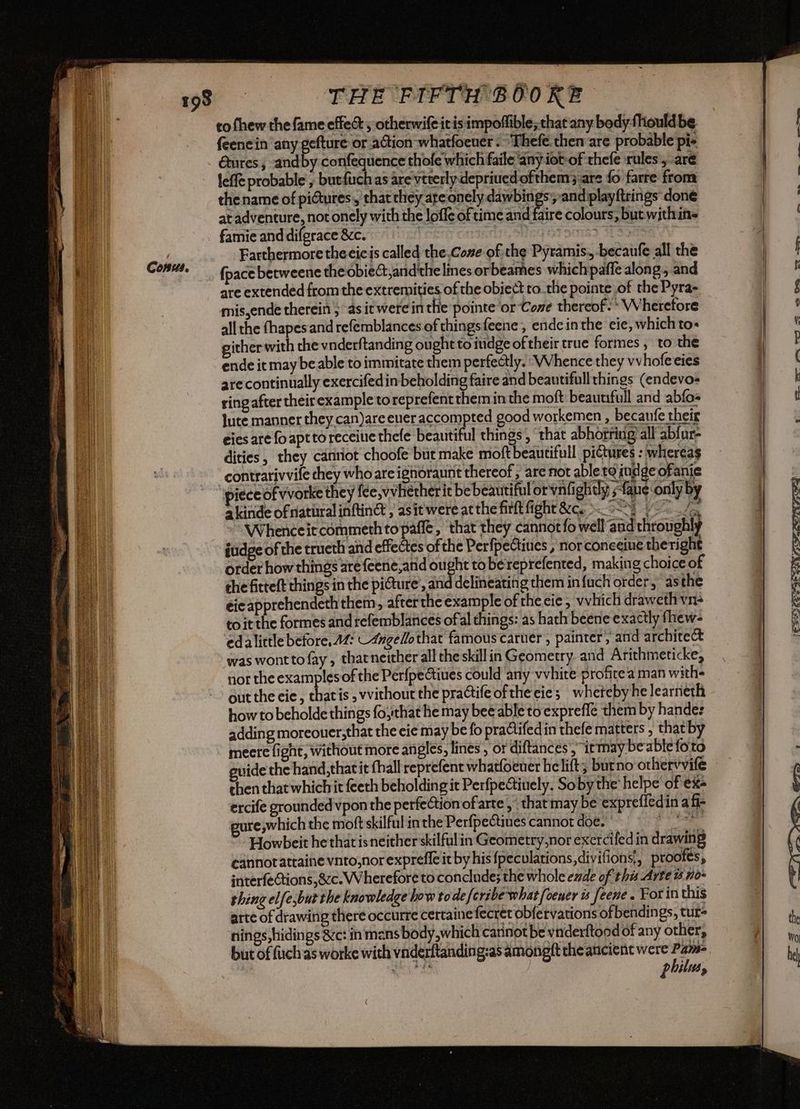 198 THE FIFTH BOOKE
to ſhew the ſame effect, otherwiſe it is impoſſible, that any body ſhould be
ſeene in any geſture or action whatſoeuer. Theſe then are probable pi-
ctures, and by conſequence thoſe which faile any iot of theſe rules, are
leſſe probable, but ſuch as are vtterly depriued of them, are ſo farre from
the name of pictures, that they are onely dawbings, and playſtrings done
at adventure, not onely with the loſſe of time and faire colours, but with in-
famie and diſgrace &c.
Farthermore the eie is called the Cone of the Pyramis, becauſe all the
Conus.
ſpace betweene the obiect, and the lines or beames which paſſe along, and
are extended from the extremities of the obiect to the pointe of the Pyra-
mis, ende therein, as it were in the pointe or Cone thereof. Wherefore
all the ſhapes and reſemblances of things ſeene, ende in the eie, which to-
gither with the vnderſtanding ought to iudge of their true formes, to the
ende it may be able to immitate them perfectly. Whence they vvhoſe eies
are continually exerciſed in beholding faire and beautifull things (endevo-
ring after their example to repreſent them in the moſt beautifull and abſo-
lute manner they can) are euer accompted good workemen, becauſe their
eies are ſo apt to receiue theſe beautiful things, that abhorring all abſur-
dities, they cannot chooſe but make moſt beautifull pictures: whereas
contrarivviſe they who are ignoraunt thereof, are not able to iudge of anie
piece of vvorke they ſee, vvhether it be beautiful or vnſightly, ſaue only by
a kinde of natural inſtinct, as it were at the firſt ſight &c.
Whence it commeth to paſſe, that they cannot ſo well and throughly
iudge of the trueth and effectes of the Perſpectiues, nor conceiue the right
order how things are ſeene, and ought to be repreſented, making choice of
the fitteſt things in the picture, and delineating them in ſuch order, as the
eie apprehendeth them, after the example of the eie, vvhich draweth vn-
to it the formes and reſemblances of al things: as hath beene exactly ſhew-
ed a little before. M: Angello that famous caruer, painter, and architect
was wont to ſay, that neither all the skill in Geometry and Arithmeticke,
nor the examples of the Perſpectiues could any vvhite profite a man with-
out the eie, that is, vvithout the practiſe of the eie; whereby he learneth
how to beholde things ſo, that he may bee able to expreſſe them by hande:
adding moreouer, that the eie may be ſo practiſed in theſe matters, that by
meere ſight, without more angles, lines, or diſtances, it may be able ſo to
guide the hand, that it ſhall repreſent whatſoeuer he liſt; but no othervviſe
then that which it ſeeth beholding it Perſpectiuely. So by the helpe of ex-
erciſe grounded vpon the perfection of arte, that may be expreſſed in a fi-
gure, which the moſt skilful in the Perſpectiues cannot doe.
Howbeit he that is neither skilful in Geometry, nor exerciſed in drawing
cannot attaine vnto, nor expreſſe it by his ſpeculations, diviſions, proofes,
interſections, &c. Wherefore to conclude; the whole ende of this Arte is no-
thing elſe, but the knowledge how to deſcribe what ſoeuer is ſeene. For in this
arte of drawing there occurre certaine ſecret obſervations of bendings, tur-
nings, hidings &c: in mans body, which cannot be vnderſtood of any other,
but of ſuch as worke with vnderſtanding: as amongſt the ancient were Pam-
philus,